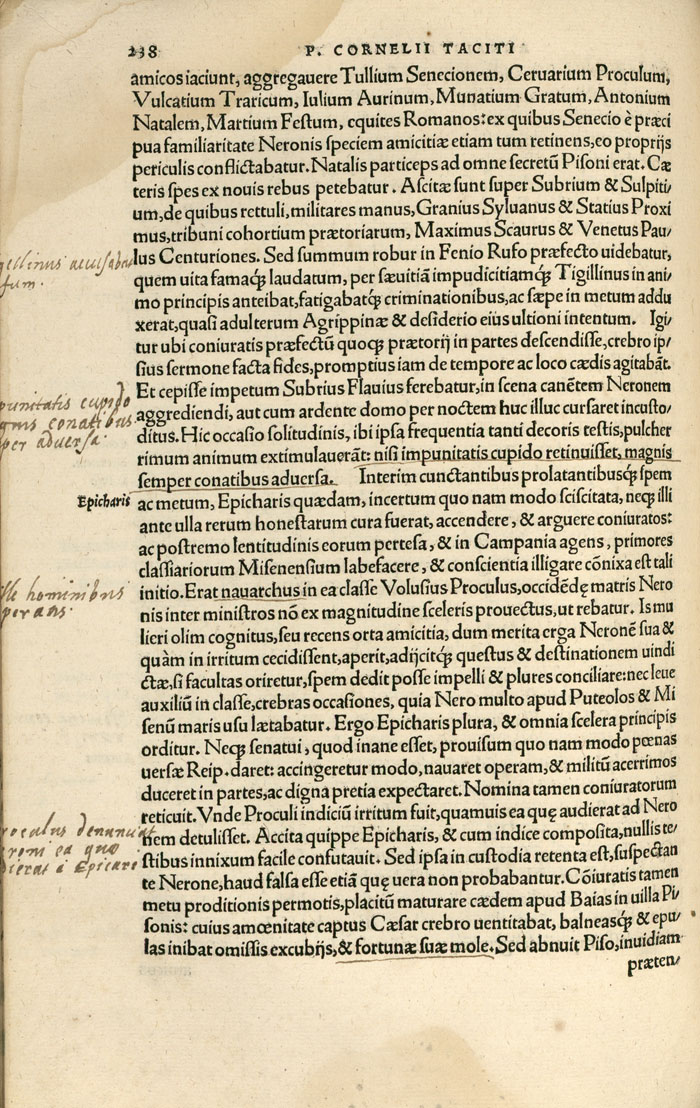 238 P. CORNELII TACITI
amicos iaciunt, aggregauere Tullium Senecionem, Ceruarium Proculum,
Vulcatium Traricum, Iulium Aurinum, Munatium Gratum, Antonium
Natalem, Martium Festum, equites Romanos: ex quibus Senecio è præci
pua familiaritate Neronis speciem amicitiæ etiam tum retinens, eo proprijs
periculis conflictabatur. Natalis particeps ad omne secretũ Pisoni erat. Cæ
teris spes ex nouis rebus petebatur. Ascitæ sunt super Subrium & Sulpiti/
um, de quibus rettuli, militares manus, Granius Syluanus & Statius Proxi
mus, tribuni cohortium prætoriarum, Maximus Scaurus & Venetus Pau/
lus Centuriones. Sed summum robur in Fenio Rufo præfecto uidebatur,
quem uita famaq́ʒ laudatum, per sæuitiã impudicitiamq́ʒ Tigillinus in ani/
mo principis anteibat, fatigabatq́ʒ criminationibus, ac sæpe in metum addu
xerat, quasi adulterum Agrippinæ & desiderio eius ultioni intentum. Igi/
tur ubi coniuratis præfectũ quoqʒ prætorij in partes descendisse, crebro ip/
sius sermone facta fides, promptius iam de tempore ac loco cædis agitabãt.
Et cepisse impetum Subrius Flauius ferebatur, in scena canẽtem Neronem
aggrediendi, aut cum ardente domo per noctem huc illuc cursaret incusto/
ditus. Hic occasio solitudinis, ibi ipsa frequentia tanti decoris testis, pulcher
rimum animum extimulauerãt: nisi impunitatis cupido retinuisset, magnis
semper conatibus aduersa. Interim cunctantibus prolatantibusq́ʒ spem
Epicharis
ac metum, Epicharis quædam, incertum quo nam modo sciscitata, neqʒ illi
ante ulla rerum honestarum cura fuerat, accendere, & arguere coniuratos:
ac postremo lentitudinis eorum pertesa, & in Campania agens, primores
classiariorum Misenensium labefacere, & conscientia illigare cõnixa est tali
initio. Erat nauarchus in ea classe Volusius Proculus, occidẽdę matris Nero
nis inter ministros nõ ex magnitudine sceleris prouectus, ut rebatur. Is mu
lieri olim cognitus, seu recens orta amicitia, dum merita erga Neronẽ sua &
quàm in irritum cecidissent, aperit, adijcitq́ʒ questus & destinationem uindi
ctæ, si facultas oriretur, spem dedit posse impelli & plures conciliare: nec leue
auxiliũ in classe, crebras occasiones, quia Nero multo apud Puteolos & Mi
senũ maris usu lætabatur. Ergo Epicharis plura, & omnia scelera principis
orditur. Neqʒ senatui, quod inane esset, prouisum quo nam modo pœnas
uersæ Reip. daret: accingeretur modo, nauaret operam, & militũ acerrimos
duceret in partes, ac digna pretia expectaret. Nomina tamen coniuratorum
reticuit. Vnde Proculi indiciũ irritum fuit, quamuis ea quę audierat ad Nero
nem detulisset. Accita quippe Epicharis, & cum indice composita, nullis te/
stibus innixum facile confutauit. Sed ipsa in custodia retenta est, suspectan
te Nerone, haud falsa esse etiã quę uera non probabantur. Cõiuratis tamen
metu proditionis permotis, placitũ maturare cædem apud Baias in uilla Pi/
sonis: cuius amœnitate captus Cæsar crebro uentitabat, balneasq́ʒ & epu/
las inibat omissis excubijs, & fortunæ suæ mole. Sed abnuit Piso, inuidiam
præten/
punitatis cupido
conatibus
per aduersa.
hominibus
denunciat
ea quæ